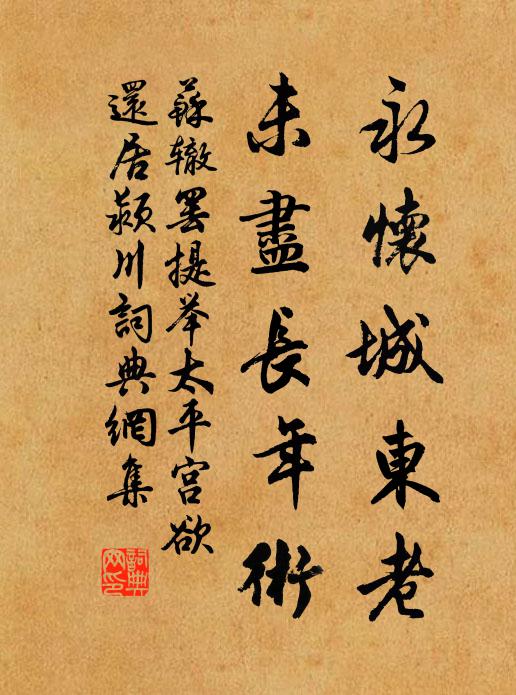 永懷城東老
未盡長年術
蘇辙罢提举太平宫欲
還居颍川詞典網集
詞典网印